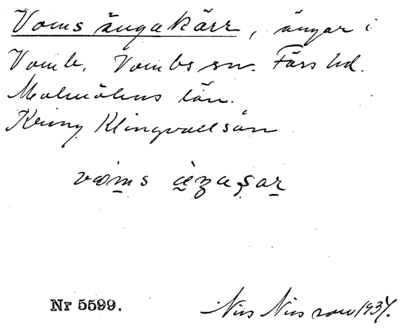 Voms ängakärr, ängar i
Vomb, Vombs sn. Färs hd.
Malmöhus län.
Kring Klingvallsån
Nr 5599. Nils Nilsson 1934.